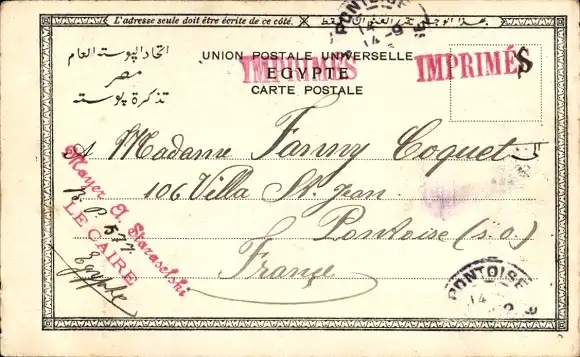 L'adresse seule doit être écrite de ce côté.
PONTOISE
14-9
اتحاد البوستة العام
مصر
تذكرة بوستة
UNION POSTALE UNIVERSELLE
EGYPTE
CARTE POSTALE
IMPRIMES
IMPRIMÉS
A Madame Fanny Coquet
106 Villa St. Jean
Pontoise (s.o)
France
Mayer A. Staraselski
B.P. 577.
LE CAIRE
Egypte
PONTOISE
14